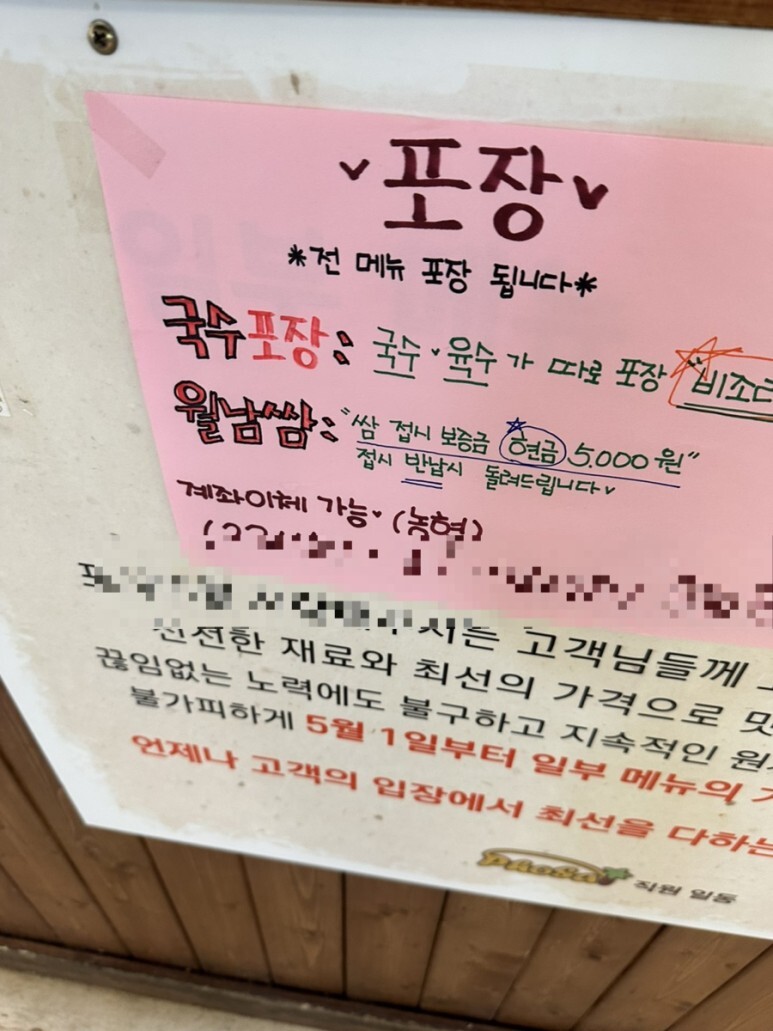 포장
*전 메뉴 포장 됩니다*
국수포장: 국수, 육수가 따로 포장 "비조리
월남쌈: "쌈 접시 보증금 현금 5.000원"
접시 반납시 돌려드립니다
계좌이체 가능 (농협)
서는 고객님들께
신선한 재료와 최선의 가격으로 맛
끊임없는 노력에도 불구하고 지속적인 원
불가피하게 5월 1일부터 일부 메뉴의 가
언제나 고객의 입장에서 최선을 다하는
직원 일동